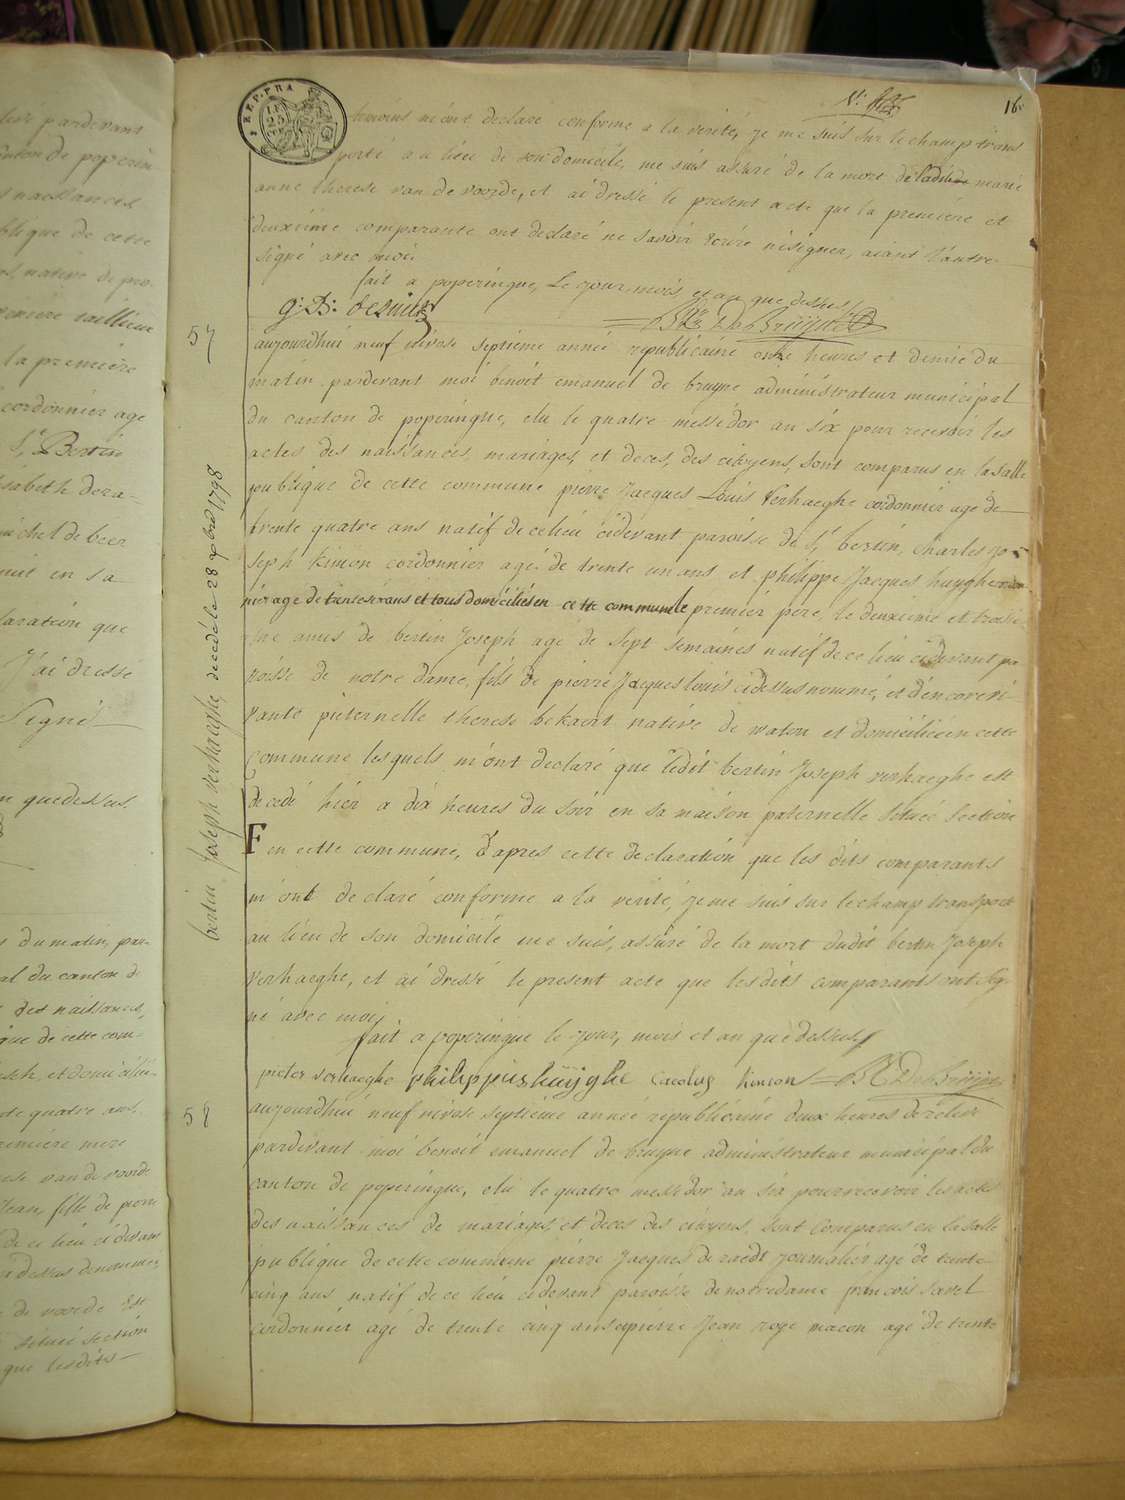 lieve pardevant
canton de poperin
s naissances
blique de cette
natine de pro
première taillieur
la première
cordonnier agé
St Bertin
isabeth dera-
michel de beer
nuit en sa
laration que
J'ai dressé
Signé
n que dessus
du matin, par-
al du canton de
des naissances,
que de cette com-
et domicilié
te quatre ans
remière mere
ese van de voorde
Jean, fille de pierre
de ce lieu ci devant
dessus denommé,
de voorde est
située section
que lesdits
REP. FRA
N:
16
temoins m'ont declaré conforme a la verité, je me suis sur le champ trans
porté au lieu de son domicile, me suis assuré de la mort de ladite marie
anne therese van de voorde, et ai dressé le present acte que la première et
deuxième comparante ont declaré ne savoir ecrire ni signer, aiant l'autre
signé avec moi.
fait a poperingue, le jour, mois, et an que dessus
g: B: desmidt
57
aujourdhui neuf nivose septieme année republicaine onze heures et demie du
matin pardevant moi benoit emanuel de bruyne administrateur municipal
du canton de poperingue, elu le quatre messidor an six pour recevoir les
actes des naissances, mariages, et deces, des citoyens, sont comparus en la salle
publique de cette commune pierre Jacques Louis Verhaeghe cordonnier agé de
trente quatre ans natif de ce lieu cidevant paroisse de St bertin, Charles Jo-
seph Kimon cordonnier agé de trente un ans et philippe Jacques huyghe cordon
nier age de trente six ans et tous domiciliés en cette commune le premier pere, le deuxieme et troisi-
eme amis de bertin Joseph agé de sept semaines natif de ce lieu cidevant pa
roisse de notre dame, fils de pierre Jacques louis cidessus nommé, et d'encore vi-
vante pieternelle therese bekaert native de watou et domiciliée en cette
commune lesquels m'ont declaré que ledit bertin Joseph verhaeghe est
decedé hier a dix heures du soir en sa maison paternelle située section
F en cette commune, d'apres cette declaration que les dits comparants
m'ont declaré conforme a la verité, je me suis sur le champ transporté
au lieu de son domicile me suis, assuré de la mort dudit bertin Joseph
verhaeghe, et ai dressé le present acte que lesdits comparants ont sig-
né avec moi
fait a poperingue le jour, mois et an que dessus
pieter verhaeghe philippus huÿghe Carolus Kimon
bertin Joseph verhaeghe, decedé le 28 xbre 1798
58
aujourdhui neuf nivose septième année republicaine deux heures de rélevée
pardevant moi benoit emanuel de bruyne administrateur municipal du
canton de poperingue, elu le quatre messidor an six pour recevoir les actes
des naissances de mariages, et deces des citoyens, sont comparus en la salle
publique de cette commune pierre Jacques de raedt journalier agé de trente
cinq ans natif de ce lieu cidevant paroisse de notre dame francois savel
cordonnier agé de trente cinq ans et pierre Jean roye macon agé de trente